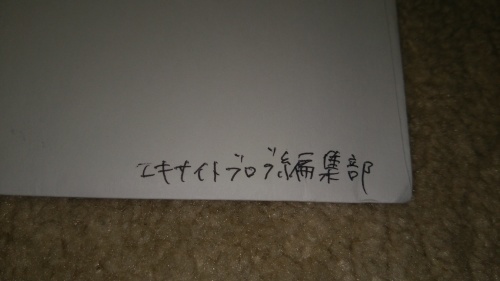 エキサイトブログ編集部